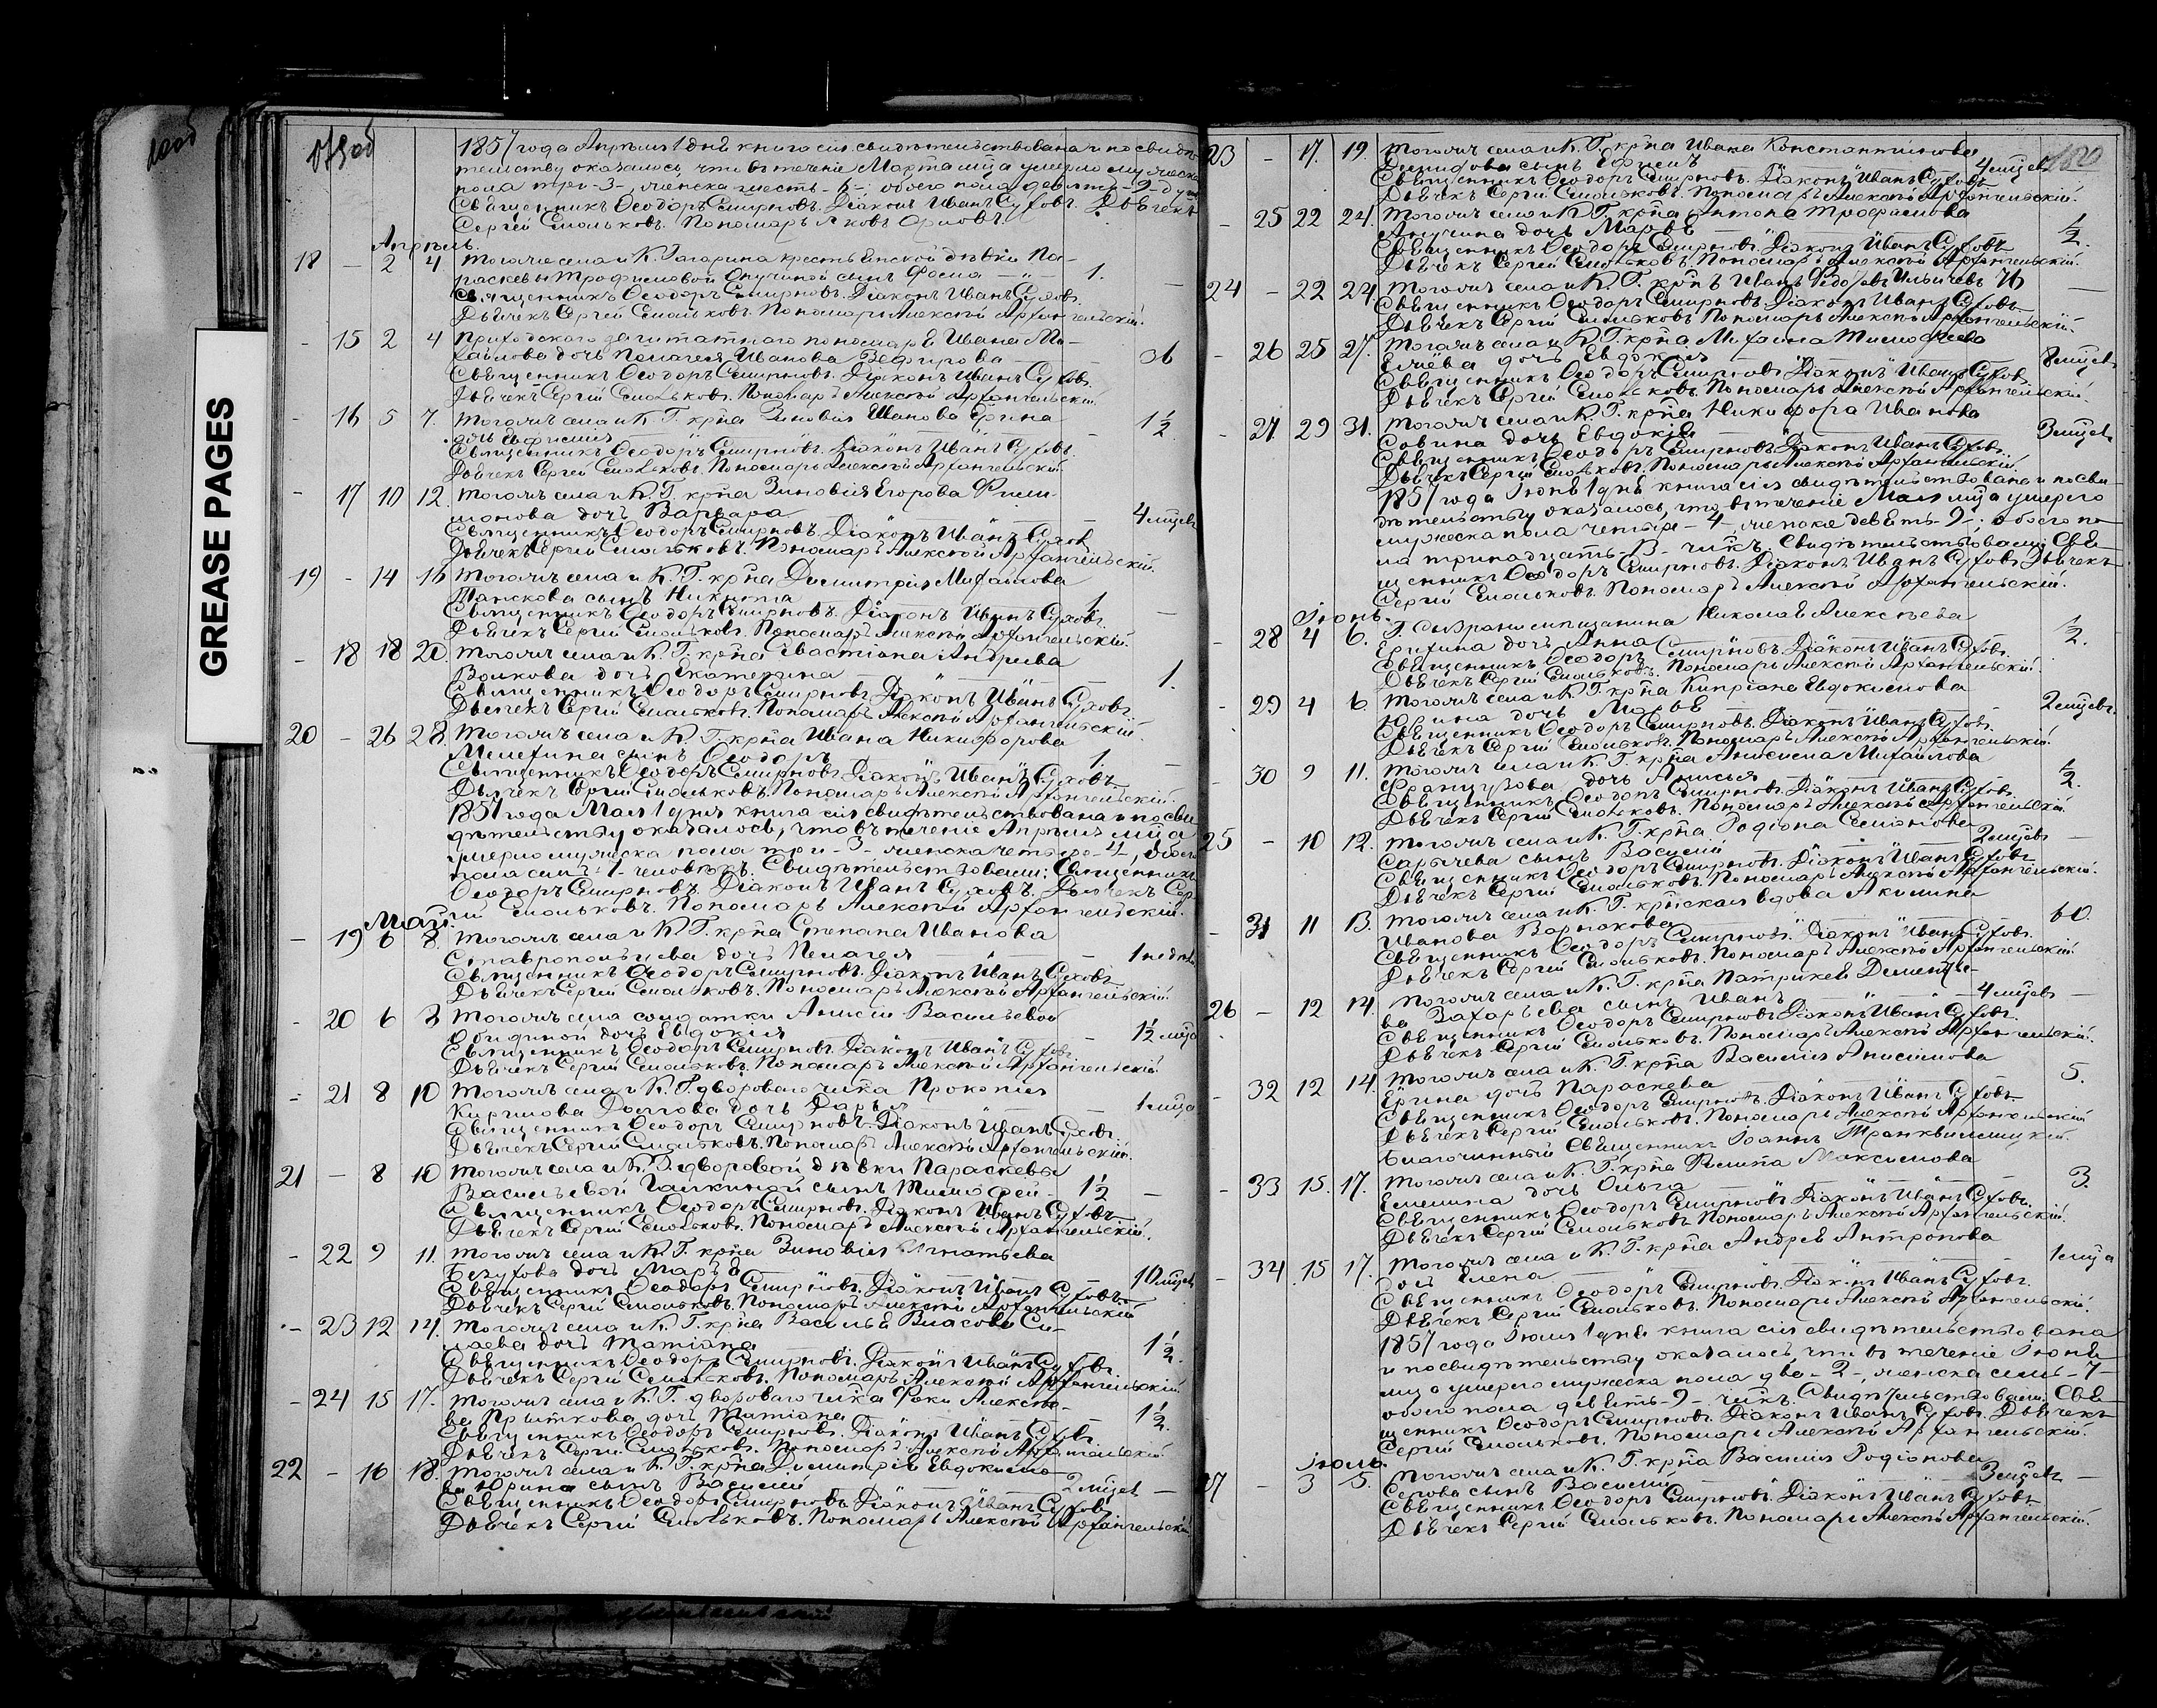 GREASE PAGES
1857 года Апрѣля 1 дня книга сія свидѣтельствована и по свидѣ-
тельству оказалось, что въ теченіе Марта мѣца умерло мужеска
пола три -3-, женска шесть -6-; обоего пола девять -9- душ
Священникъ Ѳеодоръ Смирновъ. Діаконъ Иванъ Суховъ. Дьячекъ
Сергій Смольковъ. Пономарь Яковъ Орловъ.
Апрѣль.
18 - 2 4 Тогожъ села и К. Гагарина крестьянской дѣвки Па-
раскевы Трофимовой Опучиной сынъ Фома - 1. -
Священникъ Ѳеодоръ Смирновъ. Діаконъ Иванъ Суховъ.
Дьячекъ Сергій Смольковъ. Пономарь Алексѣй Архангельскій.
- 15 2 4 Приходскаго заштатнаго пономаря Ивана Ми-
хайлова дочь Пелагея Иванова -
Священникъ Ѳеодоръ Смирновъ. Діаконъ Иванъ Суховъ.
Дьячекъ Сергій Смольковъ. Пономарь Алексѣй Архангельскій.
- 16 5 7. Тогожъ села и К. Г. крѣна Зиновія Иванова Ерина
дочь Ефимія - 1½.
Священникъ Ѳеодоръ Смирновъ. Діаконъ Иванъ Суховъ.
Дьячекъ Сергій Смольковъ. Пономарь Алексѣй Архангельскій.
- 17 10 12. Тогожъ села и К. Г. крѣна Зиновія Егорова Фили-
монова дочь Варвара - 4 мѣцев
Священникъ Ѳеодоръ Смирновъ. Діаконъ Иванъ Суховъ
Дьячекъ Сергій Смольковъ. Пономарь Алексѣй Архангельскій.
19 - 14 16 Тогожъ села и К. Г. крѣна Димитрія Михайлова
сынъ Никита 1. -
Священникъ Ѳеодоръ Смирновъ. Діаконъ Иванъ Суховъ.
Дьячекъ Сергій Смольковъ. Пономарь Алексѣй Архангельскій.
- 18 18 20. Тогожъ села и К. Г. крѣна Савастіана Андреева
Волкова дочь Екатерина - 1.
Священникъ Ѳеодоръ Смирновъ. Діаконъ Иванъ Суховъ.
Дьячекъ Сергій Смольковъ. Пономарь Алексѣй Архангельскій.
20 - 26 28. Тогожъ села и К. Г. крѣна Ивана Никифорова
сынъ Ѳеодоръ 1. -
Священникъ Ѳеодоръ Смирновъ. Діаконъ Иванъ Суховъ.
Дьячекъ Сергій Смольковъ. Пономарь Алексѣй Архангельскій.
1857 года Мая 1 дня книга сія свидѣтельствована и по сви-
дѣтельству оказалось, что въ теченіе Апрѣля мѣца
умерло мужеска пола три -3- женска четыре -4-, обоего
пола семь -7- человѣкъ. Свидѣтельствовали: Священникъ
Ѳеодоръ Смирновъ. Діаконъ Иванъ Суховъ. Дьячекъ Сер-
гій Смольковъ. Пономарь Алексѣй Архангельскій.
Май.
- 19 6 8. Тогожъ села и К. Г. крѣна Степана Иванова
Ставропольцева дочь Пелагея - 1 недѣли
Священникъ Ѳеодоръ Смирновъ. Діаконъ Иванъ Суховъ.
Дьячекъ Сергій Смольковъ. Пономарь Алексѣй Архангельскій.
- 20 6 8 Тогожъ села солдатки Анисіи Васильевой
Обидиной дочь Евдокія - 1½ мѣца
Священникъ Ѳеодоръ Смирновъ. Діаконъ Иванъ Суховъ.
Дьячекъ Сергій Смольковъ. Пономарь Алексѣй Архангельскій.
- 21 8 10 Тогожъ села и К. Г. двороваго члка Прокопія
Кирилова Долгова дочь Дарья 1 мѣца
Священникъ Ѳеодоръ Смирновъ. Діаконъ Иванъ Суховъ.
Дьячекъ Сергій Смольковъ. Пономарь Алексѣй Архангельскій.
21 - 8 10 Тогожъ села и К. Г. дворовой дѣвки Параскевы
Васильевой Галкиной сынъ Тимофей - 1½ -
Священникъ Ѳеодоръ Смирновъ. Діаконъ Иванъ Суховъ.
Дьячекъ Сергій Смольковъ. Пономарь Алексѣй Архангельскій.
- 22 9 11. Тогожъ села и К. Г. крѣна Зиновія Игнатьева
Безухова дочь Марѳа 10 мѣцев
Священникъ Ѳеодоръ Смирновъ. Діаконъ Иванъ Суховъ.
Дьячекъ Сергій Смольковъ. Пономарь Алексѣй Архангельскій
- 23 12 14. Тогожъ села и К. Г. крѣна Василья Власова Си-
лаева дочь Татіана 1½.
Священникъ Ѳеодоръ Смирновъ. Діаконъ Иванъ Суховъ.
Дьячекъ Сергій Смольковъ. Пономарь Алексѣй Архангельскій
- 24 15 17. Тогожъ села и К. Г. двороваго члка Фоки Алексѣе-
ва Прыткова дочь Татіана 1½.
Священникъ Ѳеодоръ Смирновъ. Діаконъ Иванъ Суховъ
Дьячекъ Сергій Смольковъ. Пономарь Алексѣй Архангельскій
22 - 16 18. Тогожъ села и К. Г. крѣна Димитрія Евдокимо-
ва Юрина сынъ Василій 2 мѣцев -
Священникъ Ѳеодоръ Смирновъ. Діаконъ Иванъ Суховъ
Дьячекъ Сергій Смольковъ. Пономарь Алексѣй Архангельскій
23 - 17. 19. Тогожъ села и К. Г. крѣна Ивана Константинова
Демидова сынъ Ефимъ 4 мѣцев
Священникъ Ѳеодоръ Смирновъ. Діаконъ Иванъ Суховъ
Дьячекъ Сергій Смольковъ. Пономарь Алексѣй Архангельскій.
- 25 22 24. Тогожъ села и К. Г. крѣна Антона Трофимова
Апучина дочь Марѳа - ½.
Священникъ Ѳеодоръ Смирновъ. Діаконъ Иванъ Суховъ
Дьячекъ Сергій Смольковъ. Пономарь Алексѣй Архангельскій.
24 - 22 24. Тогожъ села и К. Г. крѣнъ Иванъ Ѳедоровъ Ильичевъ 76 -
Священникъ Ѳеодоръ Смирновъ. Діаконъ Иванъ Суховъ
Дьячекъ Сергій Смольковъ. Пономарь Алексѣй Архангельскій.
- 26 25 27. Тогожъ села и К. Г. крѣна Михаила Тимофеева
Елчёва дочь Евдокія 8 мѣцев
Священникъ Ѳеодоръ Смирновъ. Діаконъ Иванъ Суховъ.
Дьячекъ Сергій Смольковъ. Пономарь Алексѣй Архангельскій.
- 27 29 31. Тогожъ села и К. Г. крѣна Никифора Иванова
Савина дочь Евдокія 3 мѣцев
Священникъ Ѳеодоръ Смирновъ. Діаконъ Иванъ Суховъ.
Дьячекъ Сергій Смольковъ. Пономарь Алексѣй Архангельскій.
1857 года Іюня 1 дня книга сія свидѣтельствована и по сви-
дѣтельству оказалось, что въ теченіе Мая мѣца умерло
мужеска пола четыре -4-, женска девять -9-; обоего по-
ла тринадцать -13- члкъ. Свидѣтельствовали: Свя-
щенникъ Ѳеодоръ Смирновъ. Діаконъ Иванъ Суховъ. Дьячекъ
Сергій Смольковъ. Пономарь Алексѣй Архангельскій.
Іюнь.
- 28 4 6. Г. Сызрани мѣщанина Николая Алексѣева
Ерихина дочь Анна ½.
Священникъ Ѳеодоръ Смирновъ. Діаконъ Иванъ Суховъ.
Дьячекъ Сергій Смольковъ. Пономарь Алексѣй Архангельскій.
- 29 4 6. Тогожъ села и К. Г. крѣна Кипріана Евдокимова
Юрина дочь Марья - 2 мѣцевъ.
Священникъ Ѳеодоръ Смирновъ. Діаконъ Иванъ Суховъ.
Дьячекъ Сергій Смольковъ. Пономарь Алексѣй Архангельскій.
- 30 9 11. Тогожъ села и К. Г. крѣна Анисима Михайлова
Французова дочь Анисья ½.
Священникъ Ѳеодоръ Смирновъ. Діаконъ Иванъ Суховъ.
Дьячекъ Сергій Смольковъ. Пономарь Алексѣй Архангельскій.
25 - 10 12. Тогожъ села и К. Г. крѣна Родіона Семіонова
Сарычева сынъ Василій 2 мѣцевъ -
Священникъ Ѳеодоръ Смирновъ. Діаконъ Иванъ Суховъ
Дьячекъ Сергій Смольковъ. Пономарь Алексѣй Архангельскій.
- 31 11 13. Тогожъ села и К. Г. крѣнская вдова Акилина
Иванова Варнакова 60.
Священникъ Ѳеодоръ Смирновъ. Діаконъ Иванъ Суховъ.
Дьячекъ Сергій Смольковъ. Пономарь Алексѣй Архангельскій.
26 - 12 14. Тогожъ села и К. Г. крѣна Патрикея Дементье-
ва Захарьева сынъ Иванъ 4 мѣцевъ -
Священникъ Ѳеодоръ Смирновъ. Діаконъ Иванъ Суховъ.
Дьячекъ Сергій Смольковъ. Пономарь Алексѣй Архангельскій.
- 32 12 14. Тогожъ села и К. Г. крѣна Василія Анисимова
Ерина дочь Параскева 5.
Священникъ Ѳеодоръ Смирновъ. Діаконъ Иванъ Суховъ
Дьячекъ Сергій Смольковъ. Пономарь Алексѣй Архангельскій
Благочинный Священникъ Іоаннъ Транквиллицкій.
- 33 15. 17. Тогожъ села и К. Г. крѣна Филипа Максимова
Емелина дочь Ольга 3
Священникъ Ѳеодоръ Смирновъ. Діаконъ Иванъ Суховъ.
Дьячекъ Сергій Смольковъ. Пономарь Алексѣй Архангельскій.
- 34 15 17. Тогожъ села и К. Г. крѣна Андрея Антропова
дочь Елена 1 мѣца
Священникъ Ѳеодоръ Смирновъ. Діаконъ Иванъ Суховъ.
Дьячекъ Сергій Смольковъ. Пономарь Алексѣй Архангельскій.
1857 года Іюля 1 дня книга сія свидѣтельствована
и по свидѣтельству оказалось, что въ теченіе Іюня
мѣца умерло мужеска пола два -2-, женска семь -7-
обоего пола девять -9- члкъ. Свидѣтельствовали: Свя-
щенникъ Ѳеодоръ Смирновъ. Діаконъ Иванъ Суховъ. Дьячекъ
Сергій Смольковъ. Пономарь Алексѣй Архангельскій.
Іюль
27 - 3 5. Тогожъ села и К. Г. крѣна Василія Родіонова
Серова сынъ Василій 3 мѣцевъ -
Священникъ Ѳеодоръ Смирновъ. Діаконъ Иванъ Суховъ
Дьячекъ Сергій Смольковъ. Пономарь Алексѣй Архангельскій.